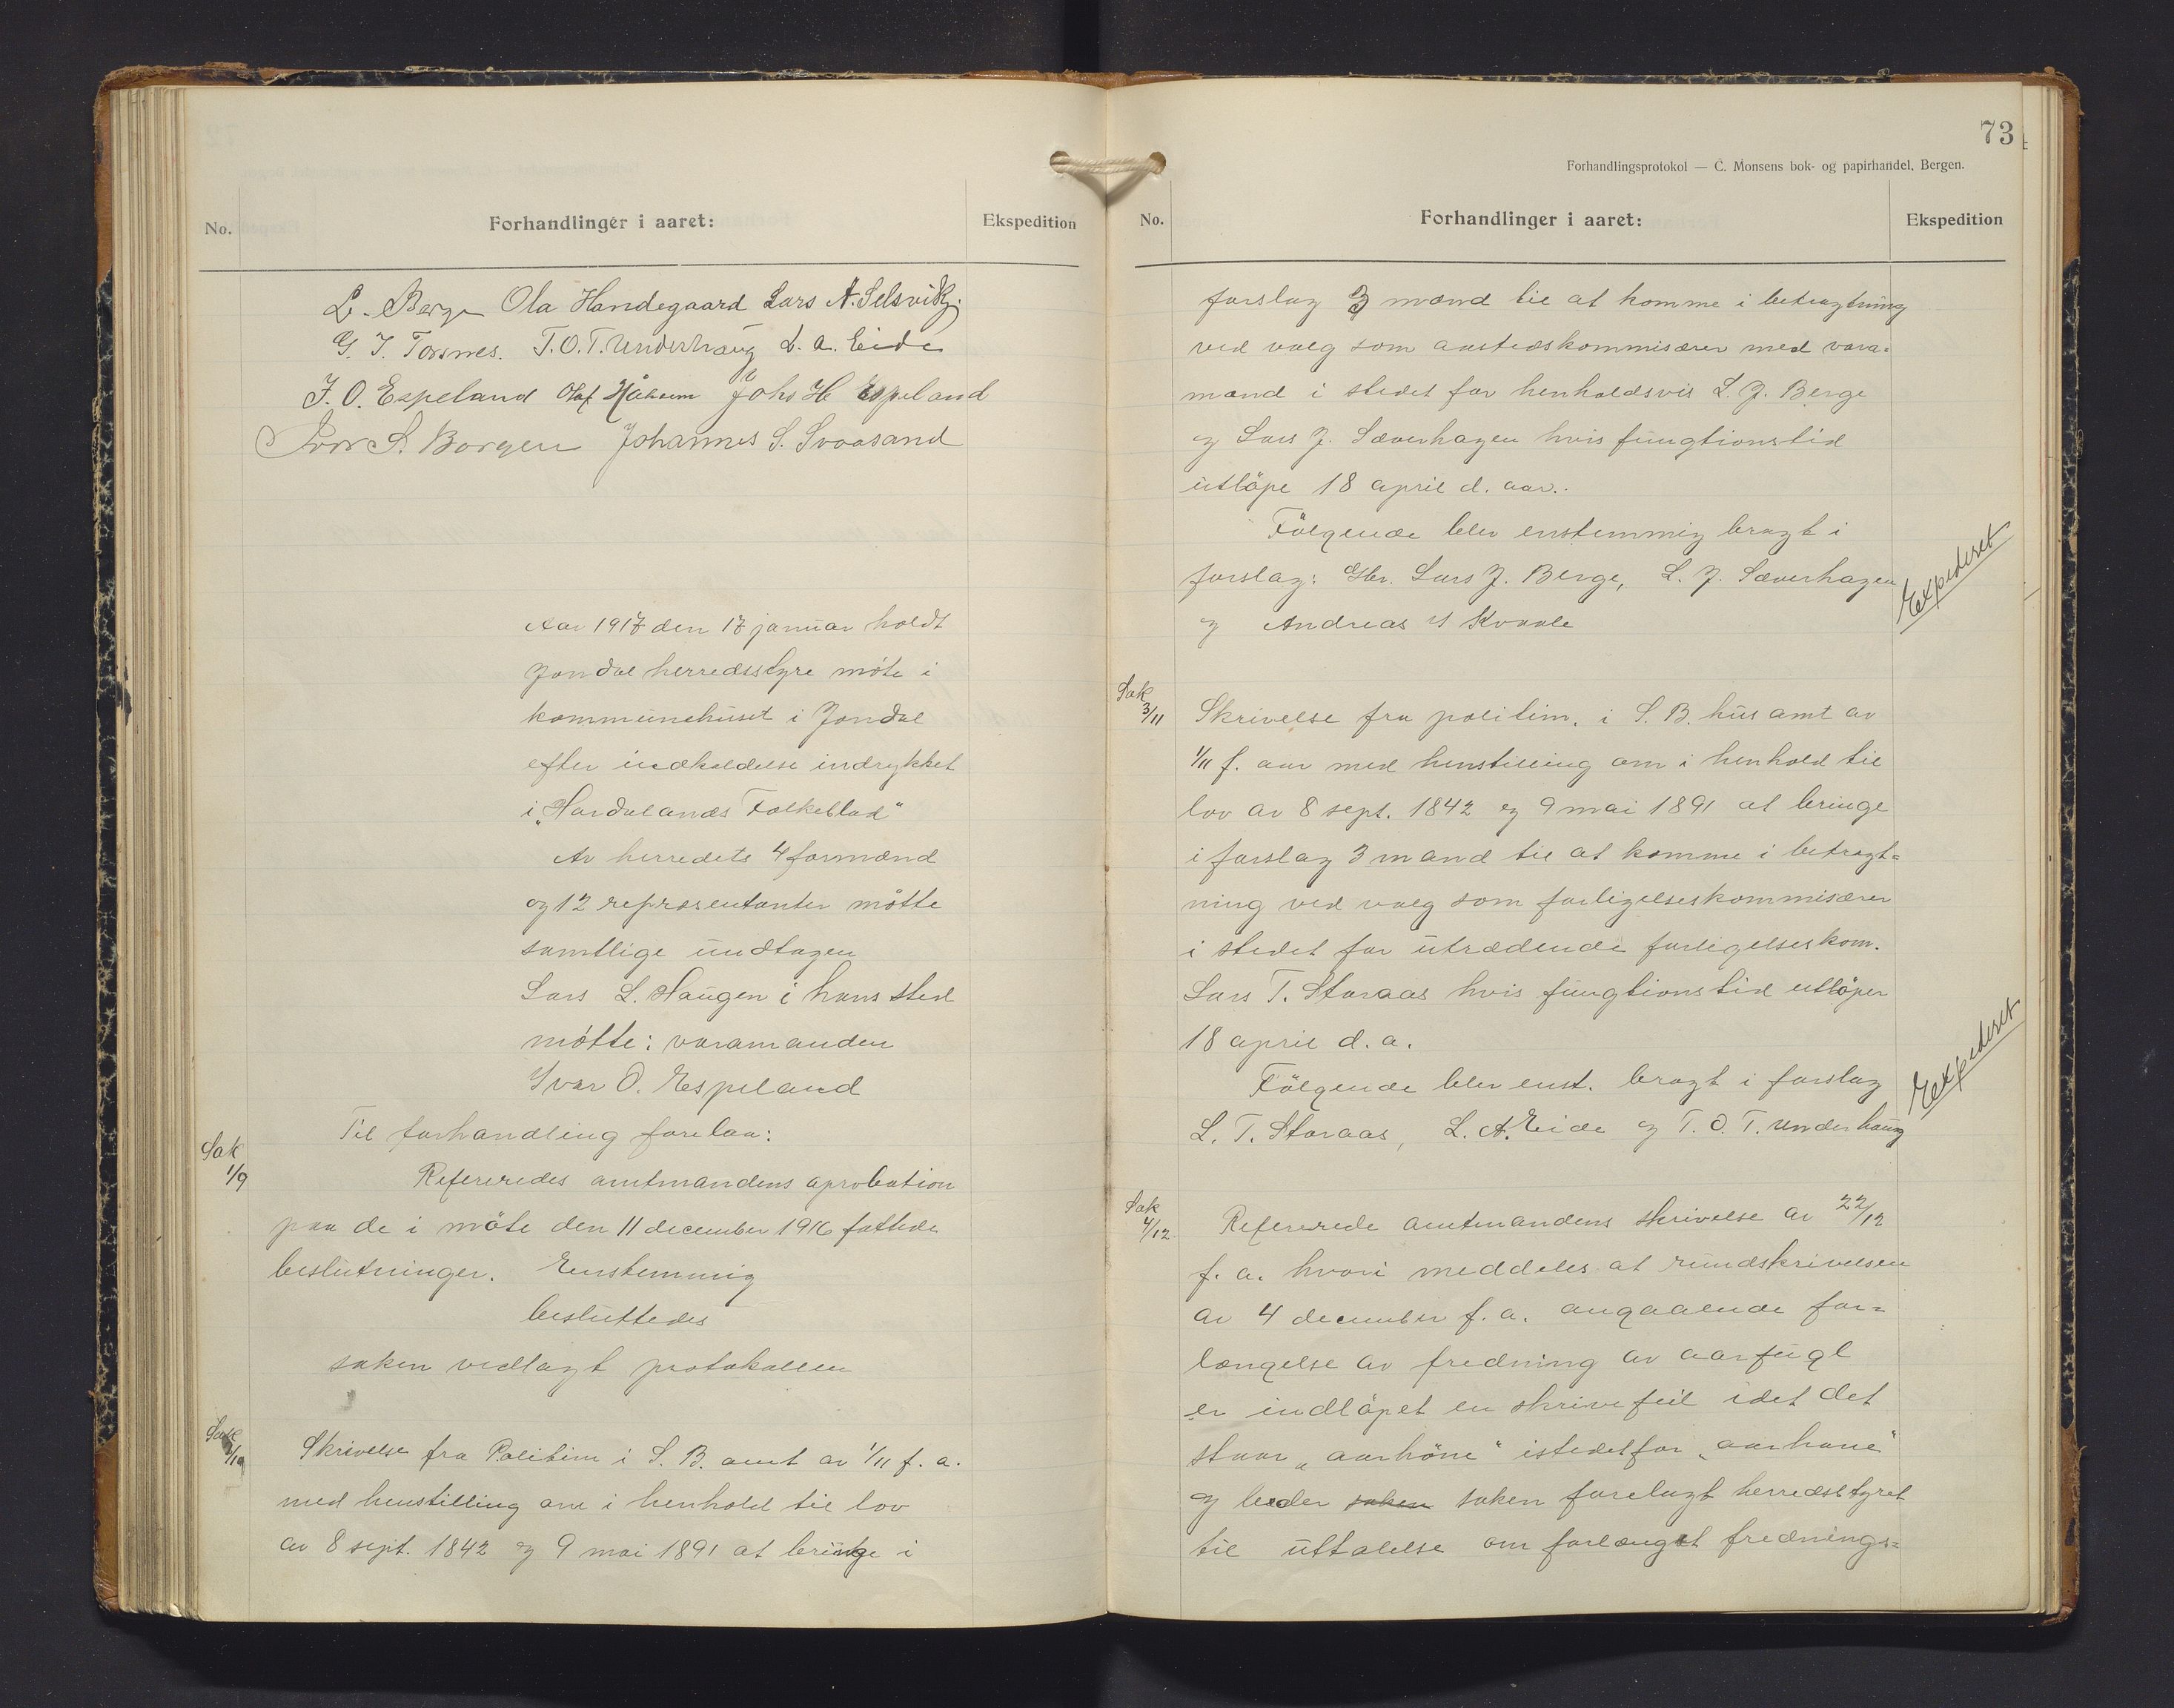 No.
Forhandlinger i aaret:
Ekspedition
L. Berge Ola Handegaard Lars N. Selsvik
G. J. Torsnes. T.O.T. Underhaug L. A. Eide
J. O. Espeland Olaf Håheim Johs H Espeland
Ivar S. Borgen Johannes S. Svaasand
Aar 1917 den 17 januar holdt
Jondal herredsstyre möte i
kommunehuset i Jondal
efter indkaldelse indrykket
i „Hardalands Folkeblad"
Av herredets 4 formænd
og 12 repræsentanter mötte
samtlige undtagen
Lars L. Haugen i hans sted
mötte: varamanden
Ivar O. Espeland
Til forhandling forelaa:
Sak
1/9
Refereredes amtmandens aprobation
paa de i möte den 11 december 1916 fattede
beslutninger. Enstemmig
besluttedes
saken vedlagt protokollen
Sak
2/10
Skrivelse fra Politim i S. B. amt av 1/11 f. a.
med henstilling om i henhold til lov
av 8 sept. 1842 og 9 mai 1891 at bringe i
73
Forhandlingsprotokol — C. Monsens bok- og papirhandel, Bergen.
No.
Forhandlinger i aaret:
Ekspedition
forslag 3 mænd til at komme i betragtning
ved valg som aastedskommisærer med vara-
mænd i stedet for henholdsvis L. J. Berge
og Lars J. Sæverhagen hvis fungtionstid
utlöpe 18 april d. aar.
Fölgende blev enstemmig bragt i
forslag: Hr. Lars J. Berge, L. J. Sæverhagen
og Andreas Kvaale
Expederet
Sak
3/11
Skrivelse fra politim. i S. B. hus amt av
1/11 f. aar med henstilling om i henhold til
lov av 8 sept. 1842 og 9 mai 1891 at bringe
i forslag 3 mænd til at komme i betragt-
ning ved valg som forligelseskommisærer
i stedet for utrædende forligelseskom.
Lars T. Staraas hvis fungtionstid utlöper
18 april d. a.
Fölgende blev enst. bragt i forslag
L. T. Staraas, L. A. Eide og T. O. T. Underhaug
Expederet
Sak
4/12
Refererede amtmandens skrivelse av 22/12
f. a. hvori meddeles at rundskrivelsen
av 4 december f. a. angaaende for-
længelse av fredning av aarfugl
er indlöpet en skrivefeil idet det
staar „aarhöne" istedetfor „aarhane"
og beder saken saken forelagt herredsstyret
til uttalelse om forlænget frednings-